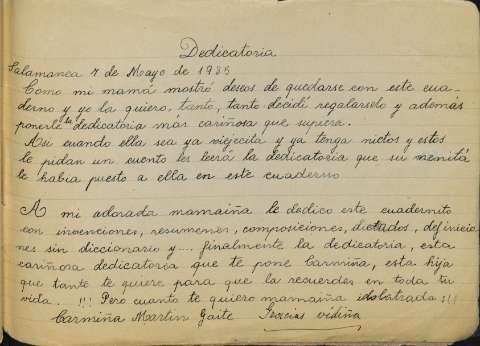 Dedicatoria
Salamanca 7 de Mayo de 1935
Como mi mamá mostró deseos de quedarse con este cua-
derno y yo la quiero, tanto, tanto decidí regalarselo y además
ponerle la dedicatoria más cariñosa que supiera.
Asi cuando ella sea ya viejecita y ya tenga nietos y estos
le pidan un cuento les leerá la dedicatoria que su nenita
le habia puesto a ella en este cuaderno
A mi adorada mamaiña le dedico este cuadernito
con invenciones, resumenes, composiciones, dictados, definicio
nes sin diccionario y.... finalmente la dedicatoria, esta
cariñosa dedicatoria que te pone Carmiña, esta hija
que tante te quiere para que la recuerdes en toda tu
vida. !!! Pero cuanto te quiero mamaiña !!!
Carmiña Martin Gaite Gracias vidiña